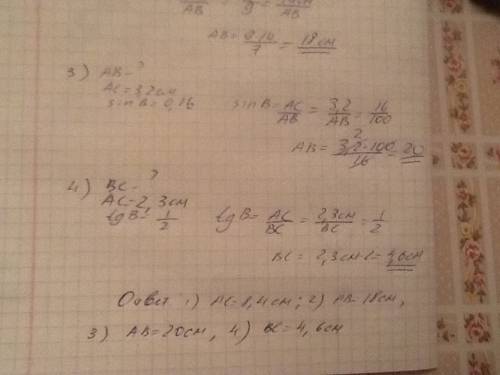 AB = 9 = AB
AB = 9·14/7 = 18 см
3) AB - ?
AC = 3,2 см
sin B = 0,16
sin B = AC/AB = 3,2/AB = 16/100
AB = 3,2·100/16 = 20
4) BC - ?
AC = 2,3 см
tg B = 1/2
tg B = AC/BC = 2,3 см/BC = 1/2
BC = 2,3 см·2 = 4,6 см
Ответ 1) AC = 8,4 см; 2) AB = 18 см,
3) AB = 20 см, 4) BC = 4,6 см